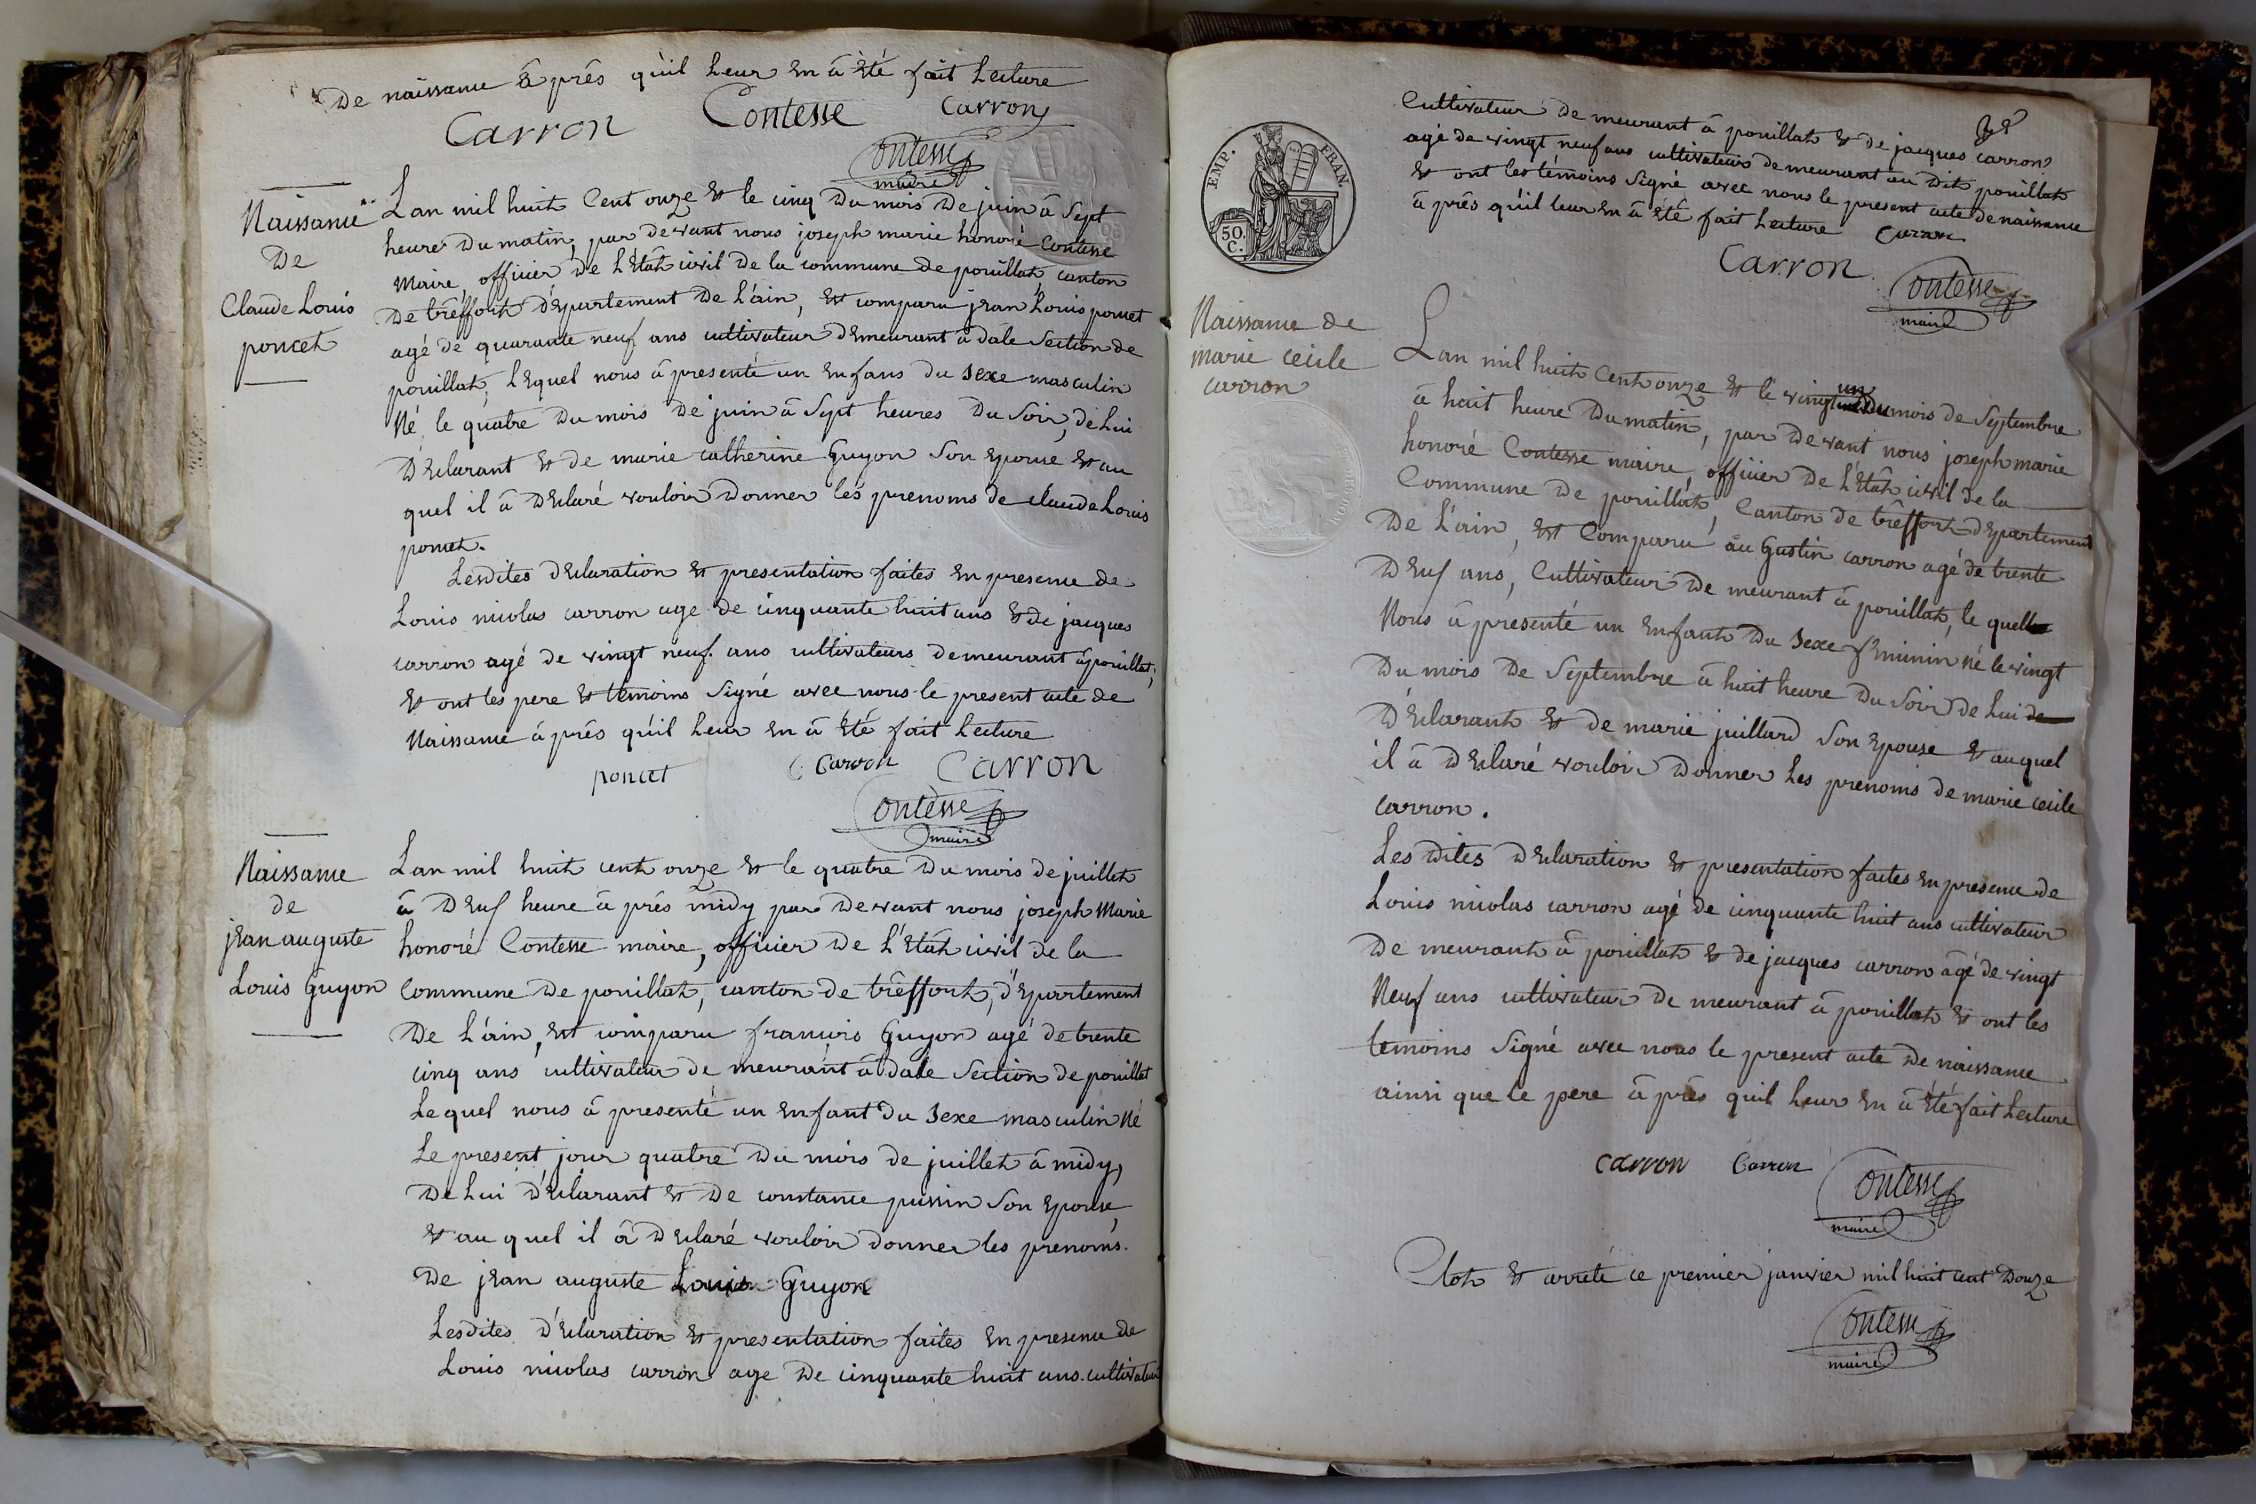 de naissance â prês qu'il leur en â Eté fait Lecture
Carron Contesse Carron
Contesse
maire
Naissance
de
Claude Louis
poncet
Lan mil huit Cent onze et le cinq du mois de juin â Sept
heure du matin, par devant nous joseph marie honoré Contesse
maire, officier de l'Etât civil de la commune de pouillat, canton
de trêffort département de l'ain, est comparu jean Louis poncet
agé de quarante neuf ans cultivateur demeurant â dâle Section de
pouillat, lequel nous â presenté un enfans du sexe masculin
né le quâtre du mois de juin â Sept heures du Soir, de lui
déclarant et de marie catherine Guyon Son epouse et au
quel il â déclaré vouloir donner les prenoms de claude Louis
poncet.
Lesdites déclaration et presentation faites en presence de
Louis nicolas carron age de cinquante huit ans et de jacques
carron agé de vingt neuf ans cultivateurs demeurant â pouillat,
et ont les pere et temoins Signé avec nous le present acte de
Naissance â prês qu'il leur en â Eté fait Lecture
poncet Carron Carron
Contesse
maire
Naissance
de
jean auguste
Louis Guyon
Lan mil huit cent onze et le quatre du mois de juillet
â deuf heure â prés midy par devant nous joseph Marie
honoré Contesse maire, officier de l'Etât civil de la
Commune de pouillat, canton de trêffort, département
de l'ain, est comparu francois Guyon agé de trente
cinq ans cultivateur de meurant â dâle Section de pouillat
Le quel nous â presenté un enfant du sexe masculin né
Le present jour quatre du mois de juillet â midy,
de lui déclarant et de constance pussin Son epouse,
et au quel il â déclaré vouloir donner les prenoms.
de jean auguste Louis Guyon
Lesdites déclaration et presentation faites en presence de
Louis nicolas carron age de cinquante huit ans. cultivateur
EMP. FRAN.
50.
C.
Cultivateur de meurant â pouillat et de jacques carron
agé de vingt neuf ans cultivateurs demeurant au dit pouillat
et ont les témoins Signé avec nous le present acte de naissance
â prés qu'il leur en â Eté fait Lecture Carron
Carron
Contesse
maire
Naissance de
marie cecile
carron
Lan mil huit Cent onze et le vingt un du mois de Septembre
â huit heure du matin, par devant nous joseph marie
honoré Contesse maire, officier de l'Etât civil de la
Commune de pouillat, Canton de trêffort département
de l'ain, est Comparu âu Gustin carron agé de trente
deuf ans, Cultivateur de meurant â pouillat, le quel
Nous â presenté un enfant du sexe féminin né le vingt
du mois de Septembre â huit heure du Soir de lui de
déclarant et de marie juillard Son epouse et auquel
il â déclaré vouloir donner les prenoms de marie cecile
carron.
Les dites déclaration et presentation faites en presence de
Louis nicolas carron agé de cinquante huit ans cultivateur
de meurant â pouillat et de jacques carron âgé de vingt
Neuf ans cultivateur de meurant â pouillat et ont les
temoins Signé avec nous le present acte de naissance
ainsi que le pere â prês quil leur en â été fait Lecture
carron Carron Contesse
maire
Clot et arrêté ce premier janvier mil huit cent douze
Contesse
maire